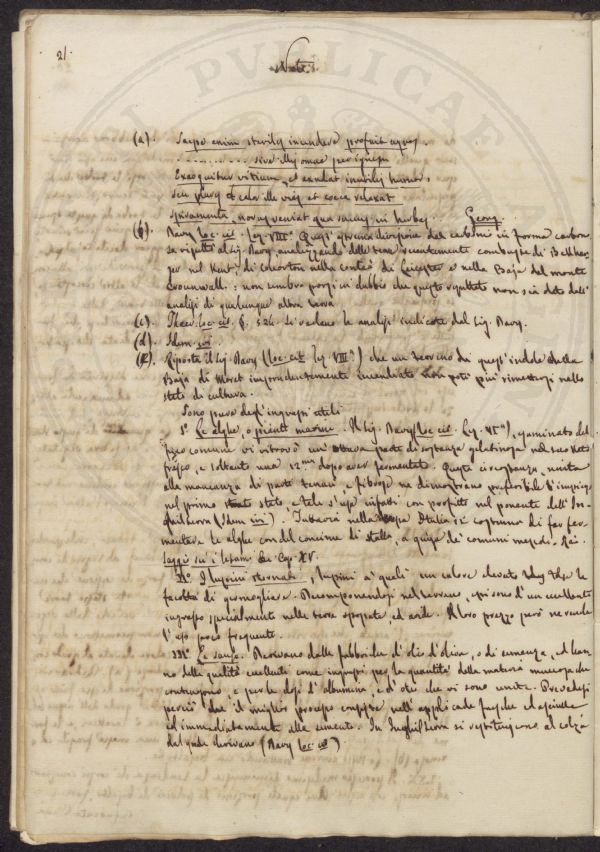 21.
Note.
(a). Saepe enim steriles incendere profuit agros.
. . . . . . . . . . sive illis omne per ignem
Excoquitur vitium, et exudat inutilis humor.
Seu plures et calor ille vias, et coeca relaxat
spiramenta: novas veniat qua succus in herbas. Georg.
(b). Davy Loc. cit. Lez. VIII. Quest' estrema divisione del carbone in forma carbono-
sa risultò al Sig. Davy, analizzando delle terre recentemente combuste di
nel Kent, di nella contea di Leicester e nella Baja del monte
: non sembra porsi in dubbio che questo risultato non sia dato dall'
analisi di qualunque altra terra
(c). Thaer. loc. cit. §. Si vedano le analisi indicate dal Sig. Davy.
(d). Idem ivi.
(e). Riporta il Sig. Davy (loc. cit. Lez. VIII) che un terreno di quegli
Baja di imprudentemente incendiato non potè più rimettersi nello
stato di cultura.
Sono pure degl'ingrassi utili
I° Le alghe, o piante marine. Il Sig. Davy (loc. cit. Lez. VI), esaminato del
fuco comune vi ritrovò un' ottava parte di sostanza gelatinosa nel suo stato
fresco, e soltanto una 12 dopo aver fermentato. Questa circostanza, unita
alla mancanza di parti tenaci, e fibrose ne dimostrano preferibile l'impiego
nel primo stato, e tale s'usa infatti con profitto nel ponente dell' In-
ghilterra (Idem ivi). Tuttavia nella Italia si costuma di far fer-
mentare le alghe con del concime di stalla, a guisa de' comuni Re.
Saggio su' i letami Cap. XV.
II° I lupini sternati, lupini a' quali un calore elevato tolse la
facoltà di germogliare. Decomponendosi nel terreno, essi sono d'un eccellente
ingrasso specialmente nelle terre spossate, ed aride. Il loro prezzo però ne rende
l'uso poco frequente.
III° Le sanse. Derivano dalle fabbriche d'olio d'oliva, o di semenza, ed han-
no delle qualità eccellenti come ingrassi per la quantità della materia mucosa che
contengono, e per le dosi d'albumina, ed olio che vi sono unite.
perciò che il miglior processo consiste nell'applicarle fresche
ed immediatamente alla semente. In Inghilterra si restituiscono al colza
dal quale derivano (Davy loc. cit.)